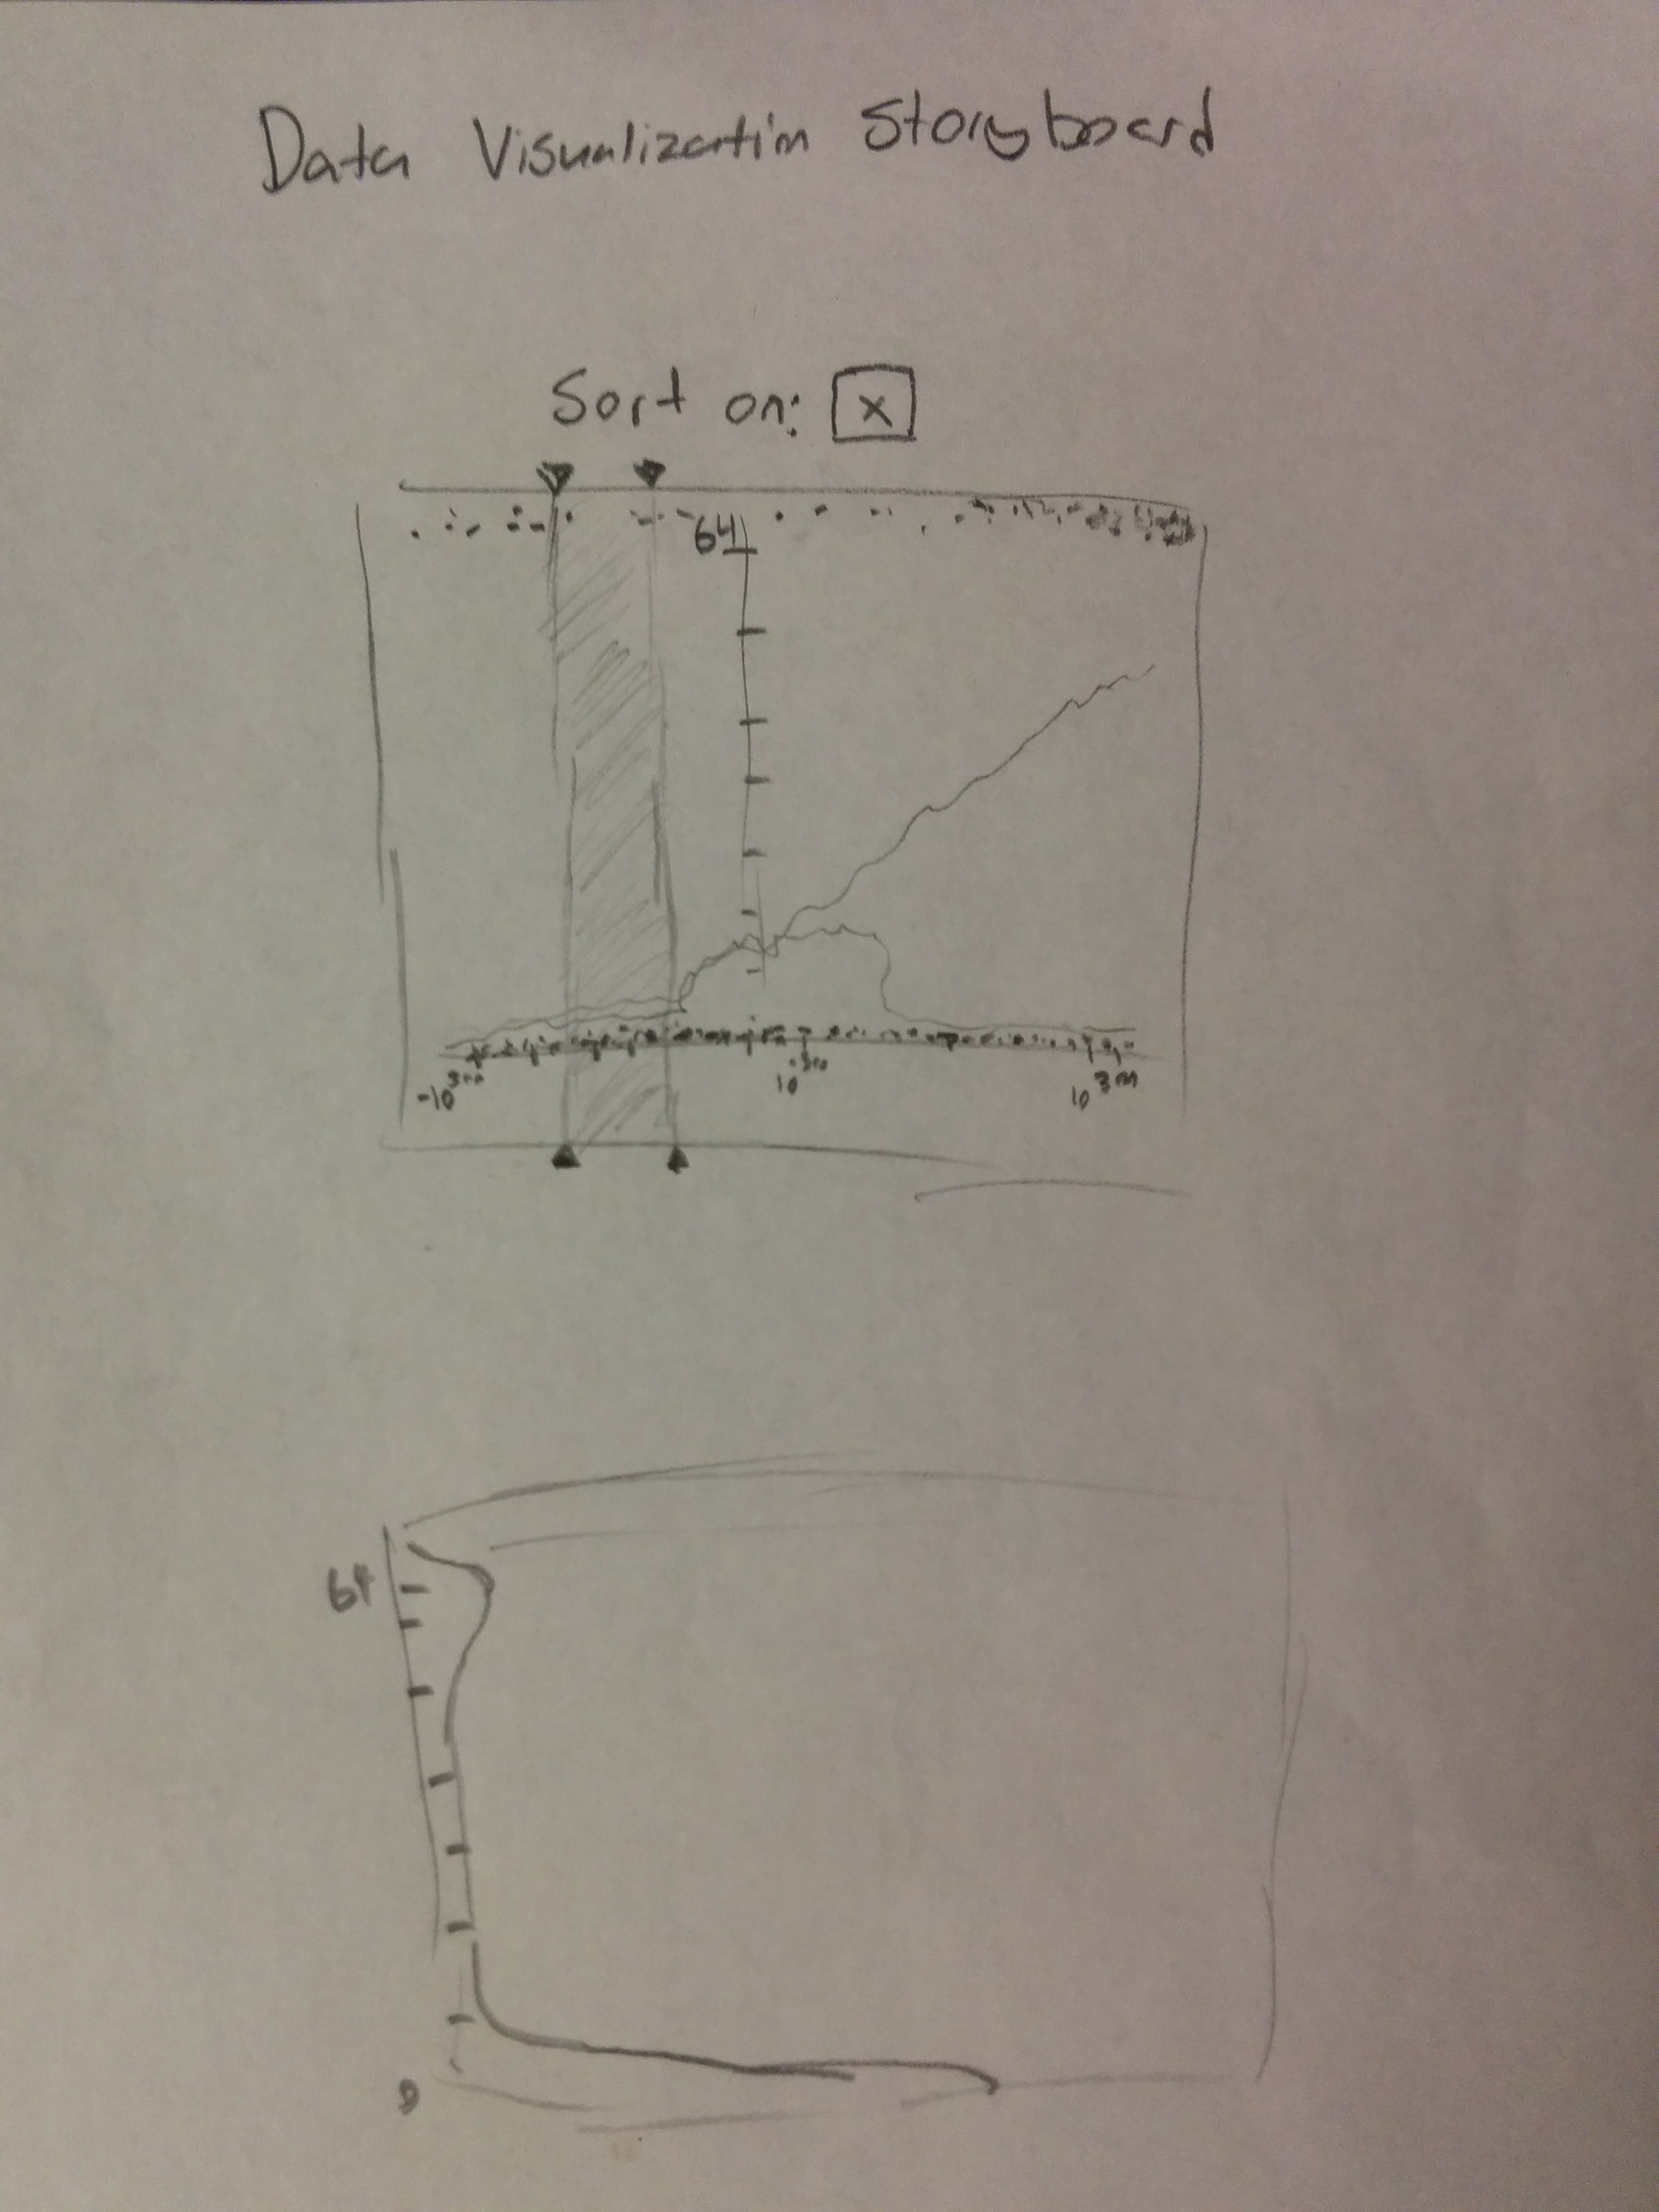 Data Visualization Storyboard
Sort on: x
64
-10³⁰⁰ 10⁻³⁰⁰ 10³⁰⁰
64
0